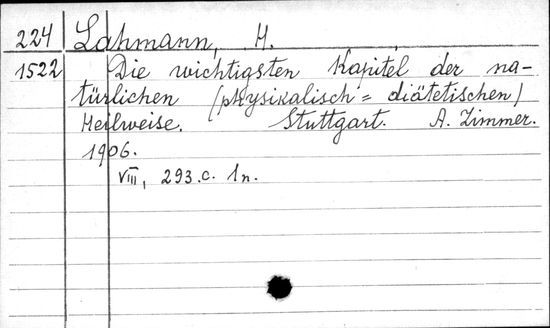 224 Lahmann, H.
1522 Die wichtigsten Kapitel der na-
türlichen (physikalisch = diätetischen)
Heilweise. Stuttgart. A. Zimmer.
1906.
VIII, 293.c. 1n.